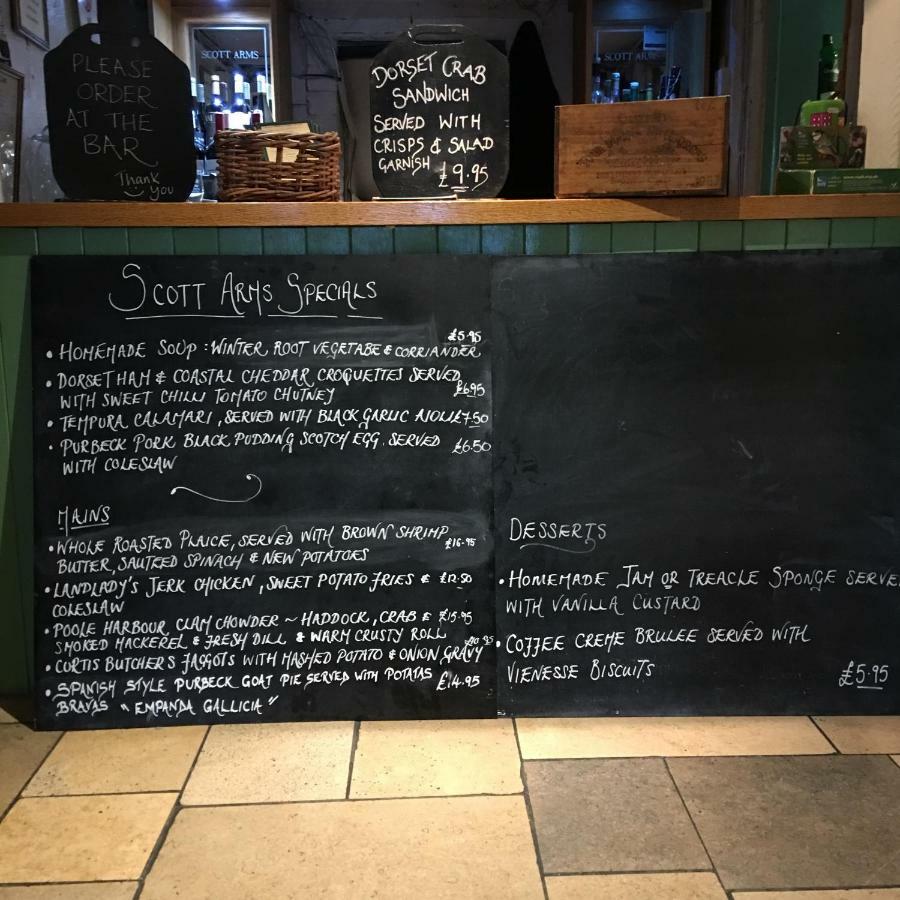 PLEASE
ORDER
AT THE
BAR
Thank
you
SCOTT ARMS
DORSET CRAB
SANDWICH
SERVED WITH
CRISPS & SALAD
GARNISH £9.95
SCOTT ARMS
SCOTT ARMS SPECIALS
£5.95
• HOMEMADE SOUP : WINTER ROOT VEGETABE & CORRIANDER
• DORSET HAM & COASTAL CHEDDAR CROQUETTES SERVED
WITH SWEET CHILLI TOMATO CHUTNEY £6.95
• TEMPURA CALAMARI, SERVED WITH BLACK GARLIC AIOLI £7.50
• PURBECK PORK BLACK PUDDING SCOTCH EGG. SERVED £6.50
WITH COLESLAW
MAINS
• WHOLE ROASTED PLAICE, SERVED WITH BROWN SHRIMP £16.95
BUTTER, SAUTEED SPINACH & NEW POTATOES
• LANDLADY'S JERK CHICKEN, SWEET POTATO FRIES & £12.50
COLESLAW
• POOLE HARBOUR CLAM CHOWDER ~ HADDOCK, CRAB & £15.95
SMOKED MACKEREL & FRESH DILL & WARM CRUSTY ROLL
• CURTIS BUTCHERS FAGGOTS WITH MASHED POTATO & ONION GRAVY
• SPANISH STYLE PURBECK GOAT PIE SERVED WITH POTATAS £14.95
BRAVAS "EMPANDA GALLICIA"
DESSERTS
• HOMEMADE JAM OR TREACLE SPONGE SERVE
WITH VANILLA CUSTARD
• COFFEE CREME BRULEE SERVED WITH
VIENESSE BISCUITS
£5.95